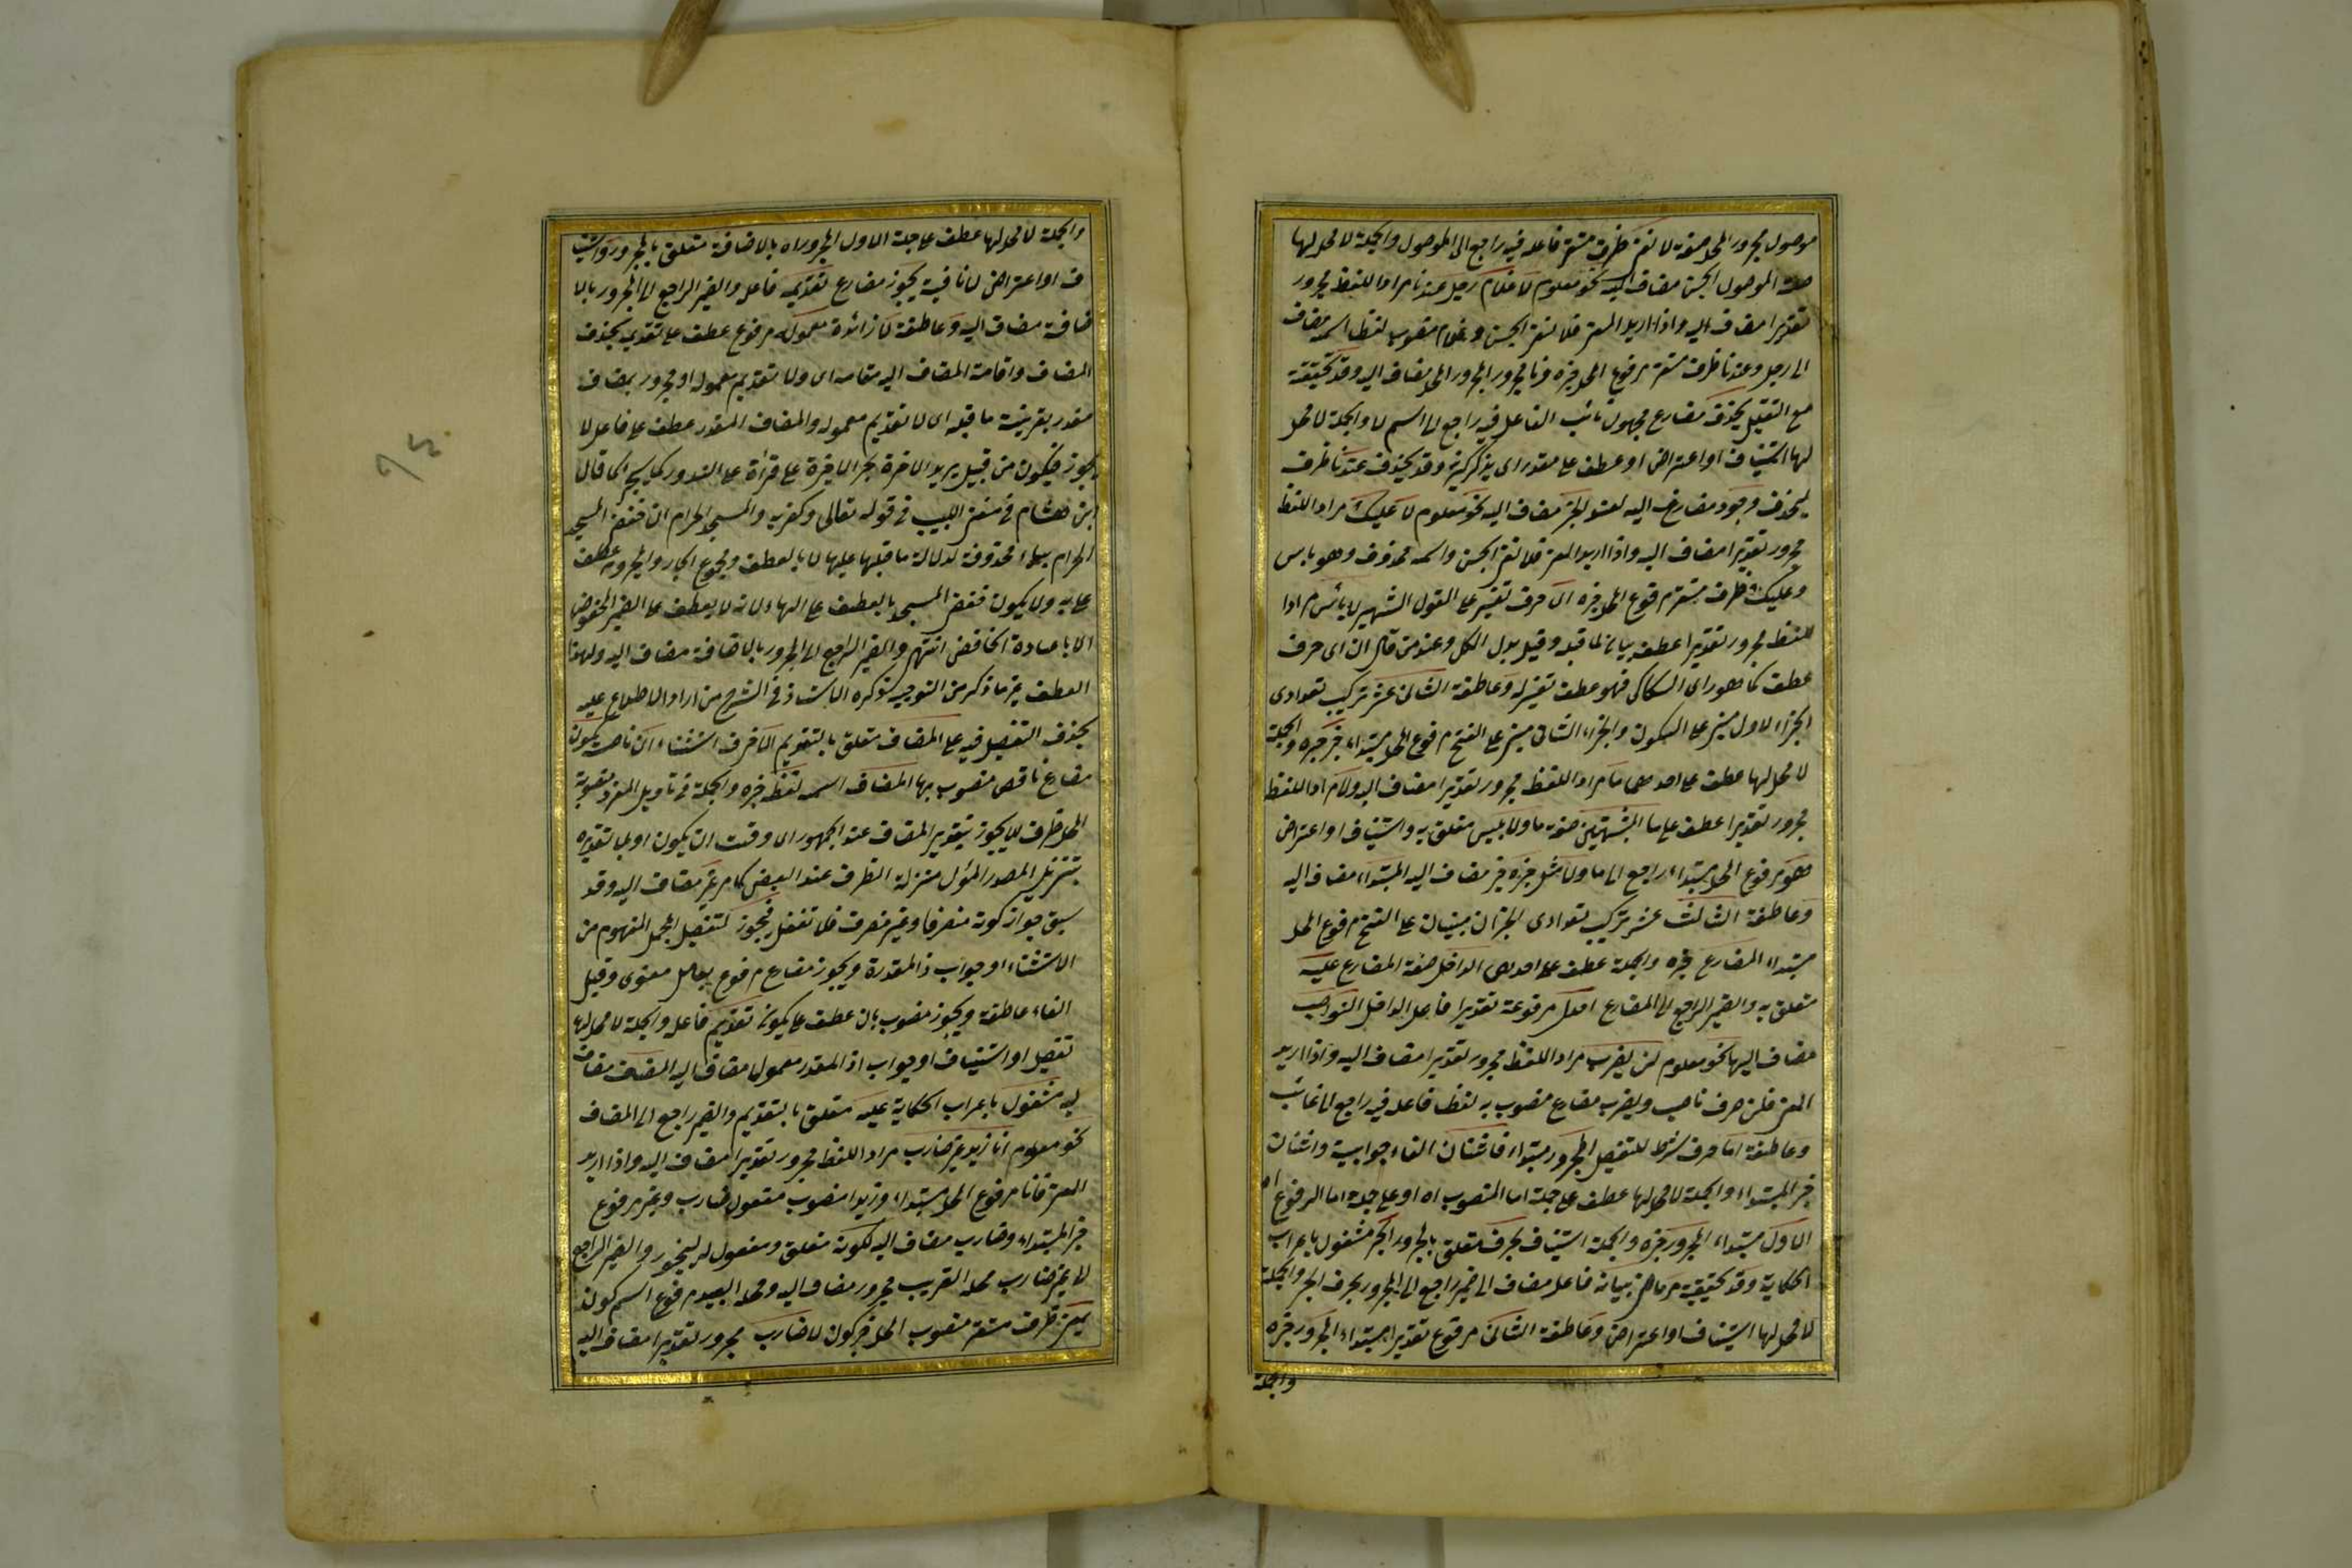 موصول مجرور المحل صفة لا لنفى ظرف مستقر فاعله فيه راجع الى الموصول والجملة لا محل لها
صلة الموصول الجنس مضاف اليه نحو معلوم لا غلام رجل عندنا مراد اللفظ مجرور
تقديرا مضاف اليه واذا اريد المعنى فلا لنفى الجنس وغلام منصوب لفظا اسمه مضاف
الى رجل وعندنا ظرف مستقر مرفوع المحل خبره فنا مجرور المحل مضاف اليه وقد تحقيقية
مع التقليل يحذف مضارع مجهول نائب الفاعل فيه راجع الى اسم لا والجملة لا محل
لها استيناف او اعتراض او عطف على مقدر اى يذكر كثيرا وقد يحذف عند ظرف
ليحذف وجود مضاف اليه لعند الخبر مضاف اليه نحو معلوم لا عليك مراد اللفظ
مجرور تقديرا مضاف اليه واذا اريد المعنى فلا لنفى الجنس واسمه محذوف وهو باس
وعليك ظرف مستقر مرفوع المحل خبره اى حرف تفسير على القول الشهير لا بأس مراد
اللفظ مجرور تقديرا عطف بيان لما قبله وقيل بدل الكل وعند من قال ان اى حرف
عطف كما هو راى السكاكى فهو عطف تفسير له وعاطفة الثانى عشر تركيب تعدادى
الجزء الاول مبنى على السكون والجزء الثانى مبنى على الفتح مرفوع المحل مبتداء خبر خبره والجملة
لا محل لها عطف على احدهما ما مراد اللفظ مجرور تقديرا مضاف اليه ولا مراد اللفظ
مجرور تقديرا عطف على ما المشبهتين صفة ما ولا بليس متعلق به واستيناف او اعتراض
هو مرفوع المحل مبتداء راجع الى ما ولا مثل خبره خبر مضاف اليه المبتداء مضاف اليه
وعاطفة الثالث عشر تركيب تعدادى الجزان مبنيان على الفتح مرفوع المحل
مبتداء المضارع خبره والجملة عطف على احدهما الداخل صفة المضارع عليه
متعلق به والضمير الراجع الى المضارع احدى مرفوعة تقديرا فاعل الداخل النواصب
مضاف اليها نحو معلوم لن يضرب مراد اللفظ مجرور تقديرا مضاف اليه واذا اريد
المعنى فلن حرف ناصب ويضرب مضارع منصوب به لفظا فاعله فيه راجع الى غائب
وعاطفة اما حرف شرط للتفصيل المجرور مبتداء فاثنان الفاء جوابية واثنان
خبر المبتداء والجملة لا محل لها عطف على جملة اما المنصوب اه او على جملة اما المرفوع اه
الاول مبتداء المجرور خبره والجملة استيناف بحرف متعلق بالمجرور الجر مشغول باعراب
الحكاية وقد تحقيقية مر ماض بيانه فاعله مضاف الى ضمير راجع الى المجرور بحرف الجر والجملة
لا محل لها استيناف او اعتراض وعاطفة الثانى مرفوع تقديرا مبتداء المجرور خبره
والجملة
والجملة لا محل لها عطف على جملة الاول المجرور اه بالاضافة متعلق بالمجرور واستينا
ف او اعتراض لا نافية يجوز مضارع تقديمه فاعله والضمير الراجع الى المجرور بالا
ضافة مضاف اليه وعاطفة لا زائدة معموله مرفوع عطف على تقديمه بحذف
المضاف واقامة المضاف اليه مقامه اى ولا تقديم معموله او مجرور بمضاف
مقدر بقرينة ما قبله اى لا تقديم معموله والمضاف المقدر عطف على فاعل لا
يجوز فيكون من قبيل يريد الاخرة بجر الاخرة على قراءة على الندور كما سيجئ كما قال
ابن هشام فى مغنى اللبيب فى قوله تعالى وكفر به والمسجد الحرام ان خفض المسجد
الحرام بباء محذوفة لدلالة ما قبلها عليها لا بالعطف ومجموع الجار والمجرور عطف
على به ولا يكون خفض المسجد بالعطف على الهاء لانه لا يعطف على الضمير المخفوض
الا باعادة الخافض انتهى والضمير الراجع الى المجرور بالاضافة مضاف اليه ولهذا
العطف غير ما ذكر من التوجيه ذكره الاستاذ فى الشرح من اراد الاطلاع عليه
بحذف التفصيل فيه على المضاف متعلق بالتقديم الا حرف استثناء ان ناصب يكون
مضارع ناقص منصوب بها المضاف اسمه لفظ خبره والجملة فى تاويل المفرد منصوبة
المحل ظرف للا يجوز بتقدير المضاف عند الجمهور اى وقت ان يكون او بلا تقديره
بتنزيل المصدر المؤل منزلة الظرف عند البعض كما مر غير مضاف اليه وقد
سبق جواز كونه منصرفا وغير منصرف فلا تغفل فيجوز لتفصيل المجمل المفهوم من
الاستثناء او جواب اذا المقدرة ويجوز مضارع مرفوع بعامل معنوى وقيل
الفاء عاطفة ويجوز منصوب بان عطف على يكون تقديم فاعله والجملة لا محل لها
تفصيل او استيناف او جواب اذا المقدر معمول مضاف اليه المضاف مضاف
اليه مشغول باعراب الحكاية عليه متعلق بالتقديم والضمير راجع الى المضاف
نحو معلوم انا زيدا غير ضارب مراد اللفظ مجرور تقديرا مضاف اليه واذا اريد
المعنى فانا مرفوع المحل مبتداء وزيدا منصوب مفعول ضارب وغير مرفوع
خبر المبتداء وضارب مضاف اليه لكونه متعلق ومفعول له ليجوز والضمير الراجع
الى غير ضارب محله القريب مجرور مضاف اليه ومحله البعيد مرفوع اسم كونه
بمعنى ظرف مستقر منصوب المحل خبر كون لا ضارب مجرور تقديرا مضاف اليه